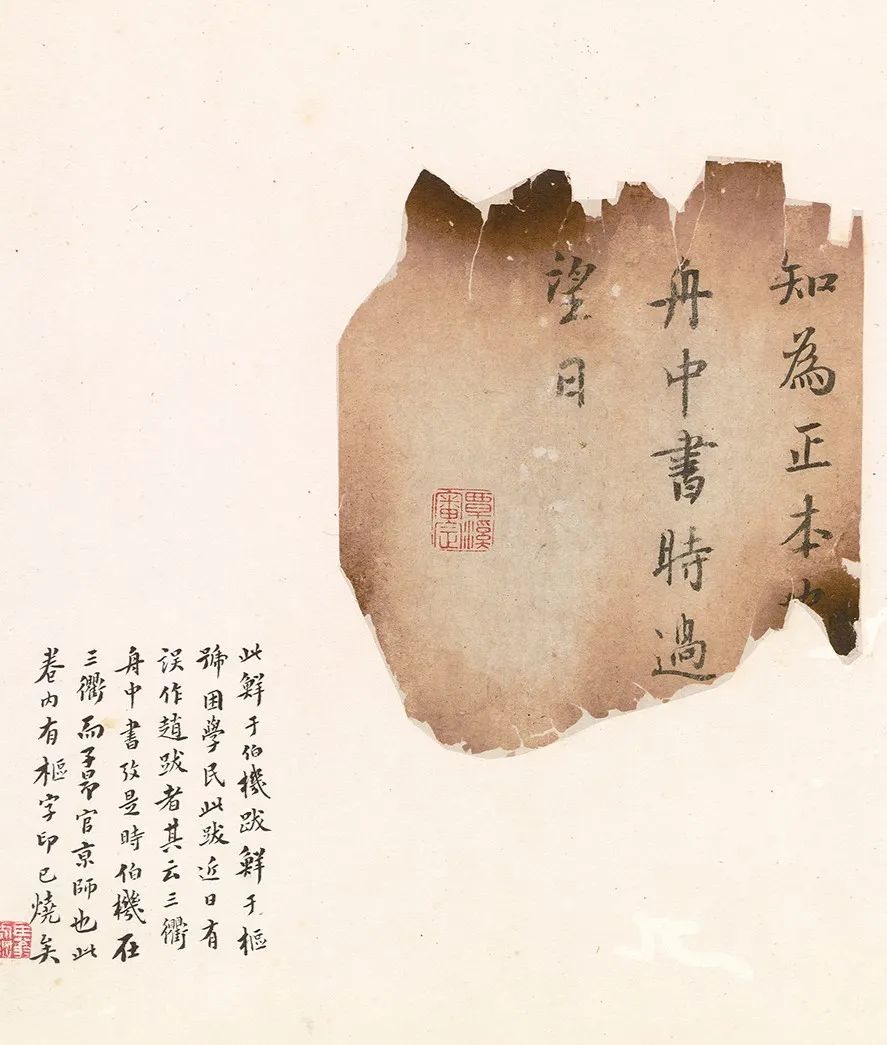 知為正本也
舟中書時過
望日
覃溪
審定
此鮮于伯機跋鮮于樞
號困學民此跋近日有
誤作趙跋者其云三衢
舟中書攷是時伯機在
三衢而子昂官京師也此
卷内有樞字印已燒矣